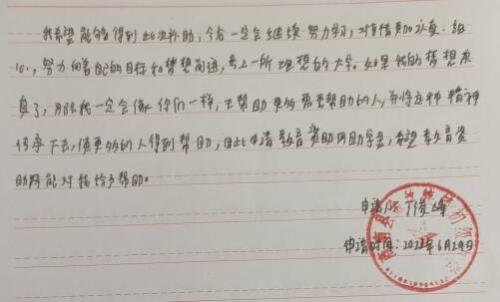 我希望能够得到此次补助,今后一定会继续努力学习,对事情更加认真、细
心,努力向着自己的目标和梦想前进,考上一所理想的大学。如果我的梦想成
真了,那么我一定会像你们一样,去帮助更多需要帮助的人,并将这种精神
传承下去,使更多的人得到帮助,因此申请教育资助网助学金,希望教育资
助网能对我给予帮助。
申请人:丁俊峰
申请时间:2022年6月29日